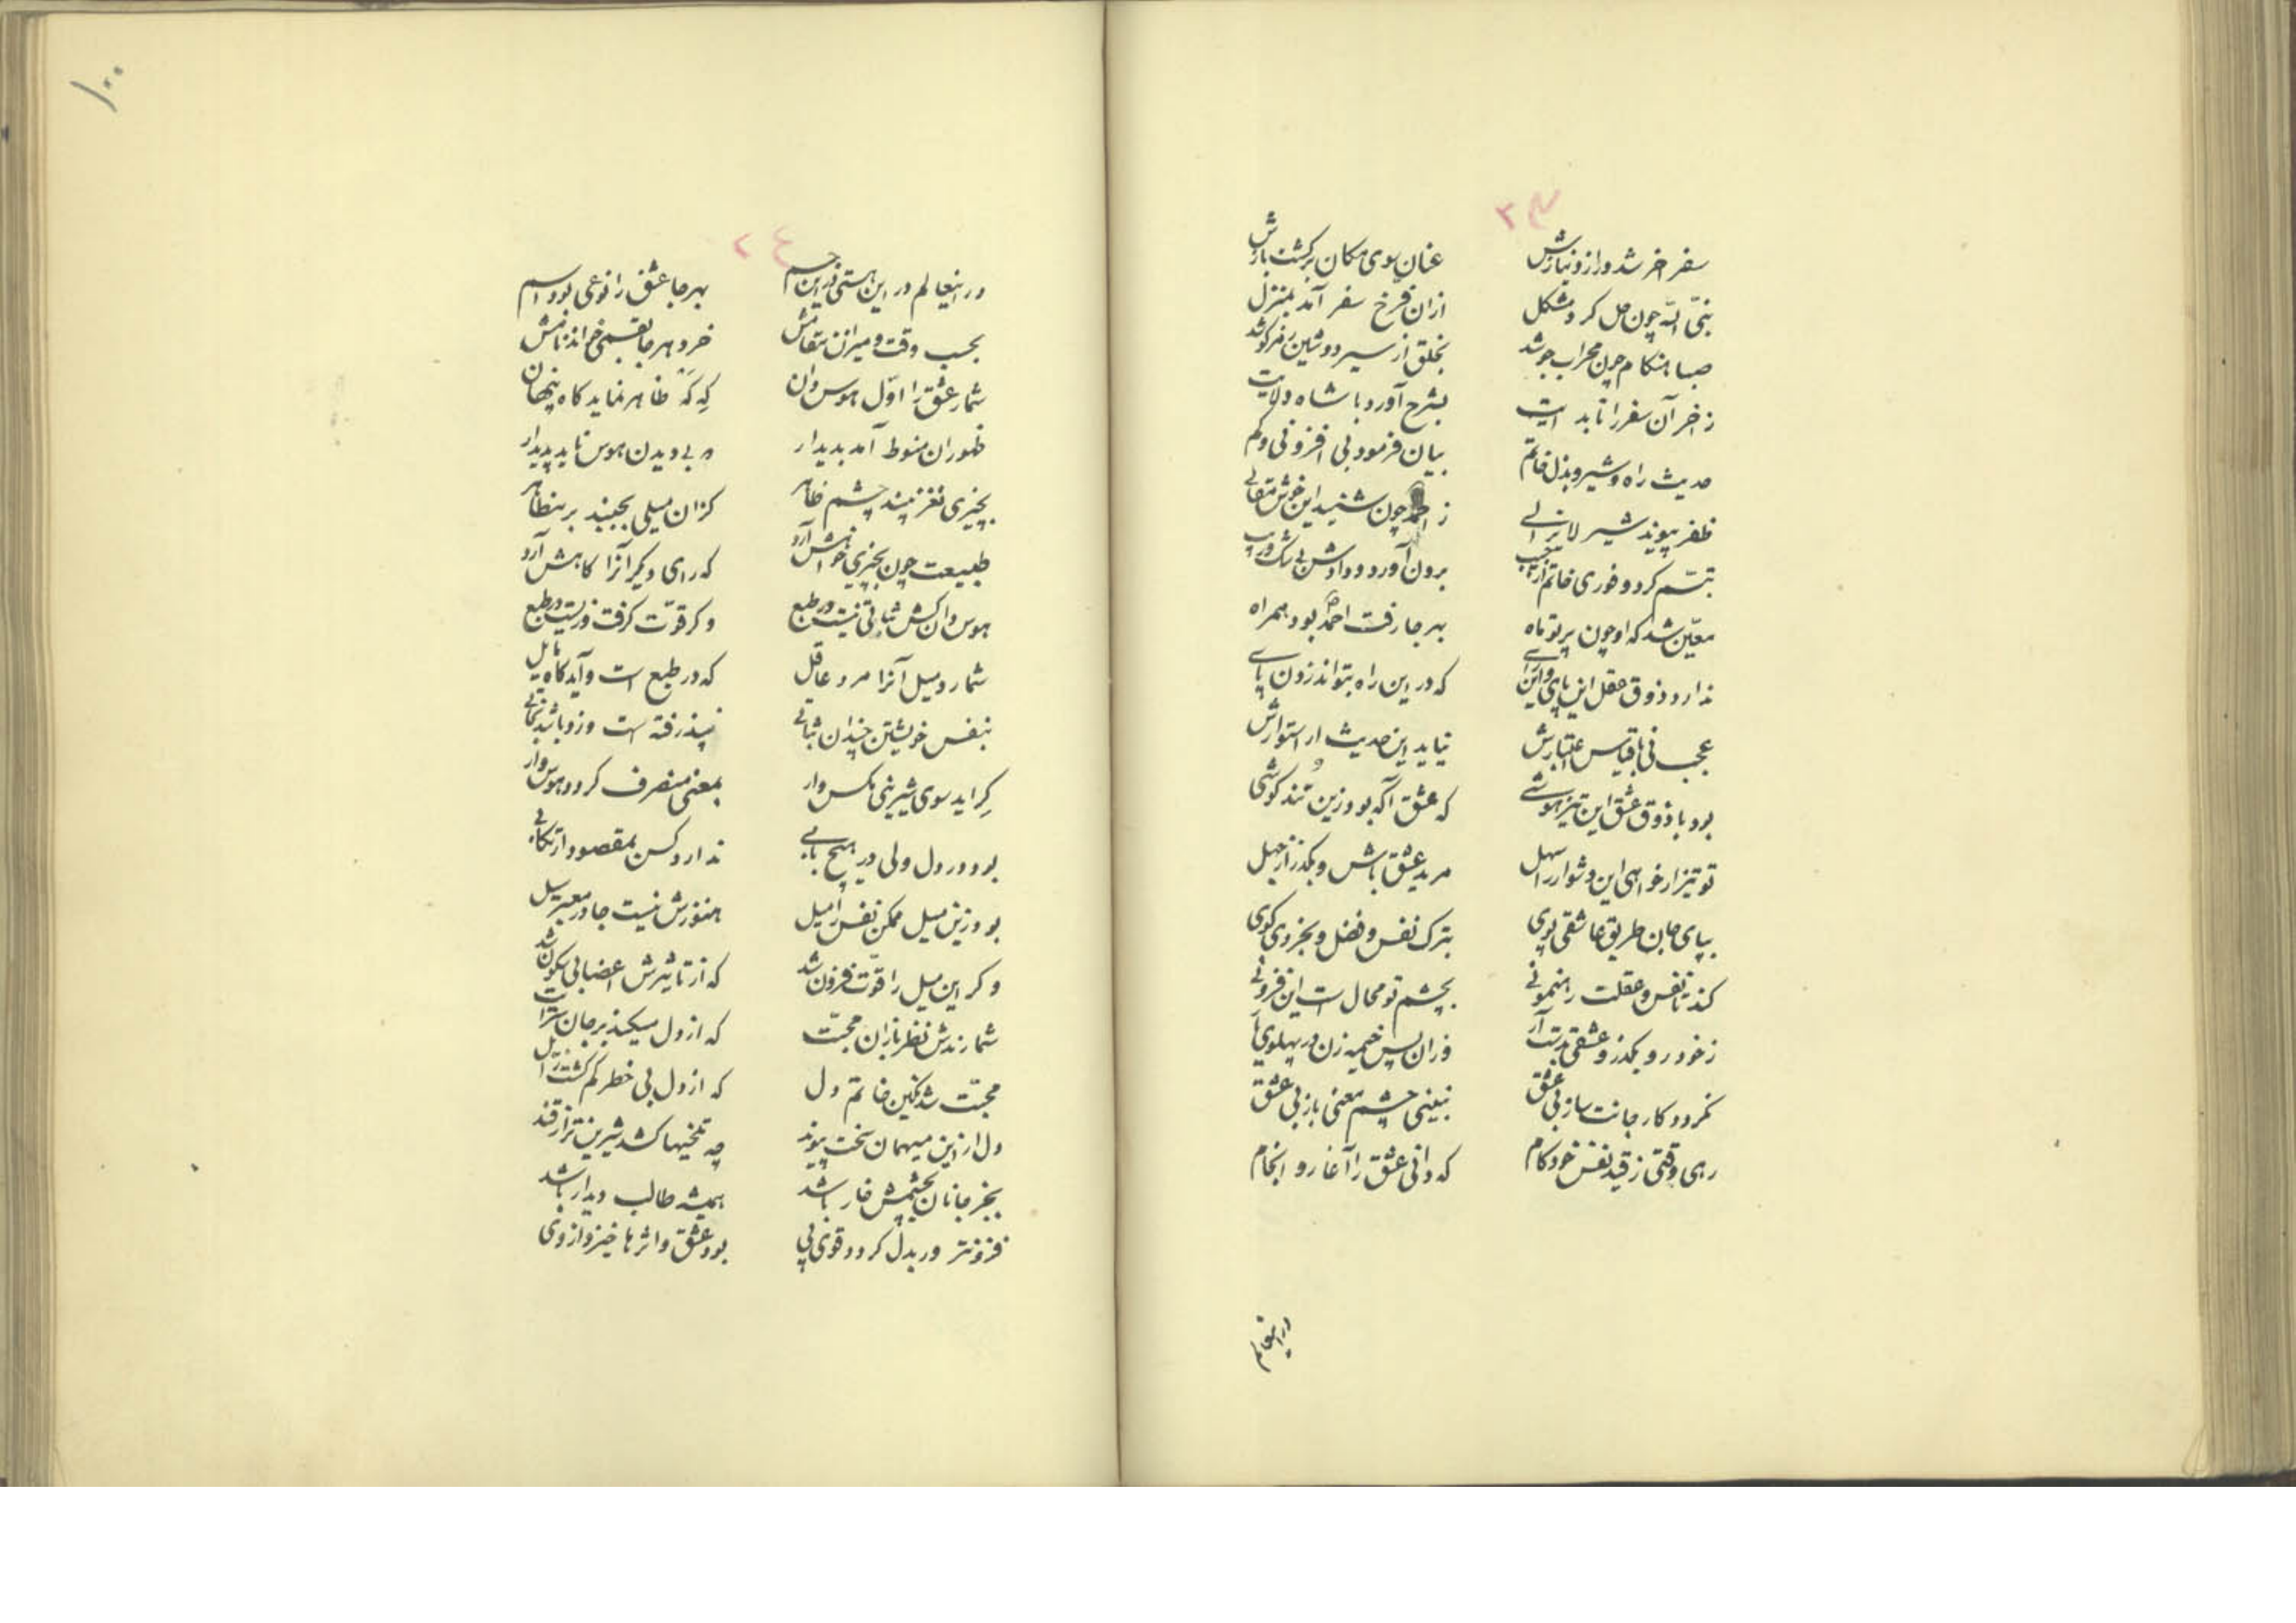 ۲۳
سفر آخر شد و راز و نیازش عنان سوی مکان برگشت بازش
نبی الله چون حل کرد مشکل ازان فرخ سفر آمد بمنزل
صبا هنکام چون محراب جو شد بخلق از سیر دوشین رمزکو شد
ز آخر آن سفر را تا بدایت بشرح آورد با شاه ولایت
حدیث راه و شیر و بذل خاتم بیان فرمود بی افزونی و کم
ظفر پیوند شیر لایزالی ز احمد چون شنید این خوش مقالی
تبسّم کرد و فوری خاتم از جیب برون آورد و دادش بی شک و ریب
معیّن شد که او چون پرتو ماه بهر جا رفت احمد بود همراه
ندارد ذوق عقل این پای و این رای که در این راه بتواند زدن پای
عجب نی با قیاس اعتبارش نیاید این حدیث ار استوارش
بود با ذوق عشق این تیزهوشی که عشق آگه بود زین تندکوشی
تو نیز ار خواهی این دشوار را سهل مرید عشق باش و بکذر از جهل
بپای جان طریق عاشقی پوی بترک نفس و فضل و بخردی کوی
کند تا نفس و عقلت رهنمونی بچشم تو محال است این فزونی
ز خود رو بکذر و عشقی بدست آر وزان پس خیمه زن در پهلوی
نکردد کار جانت ساز بی عشق نبینی چشم معنی باز بی عشق
رهی وقتی ز قید نفس خودکام که دانی عشق را آغاز و انجام
در اینعالم
۱۰۰
۲۴
در اینعالم در این هستی در این جسم بهر جا عشق را نوعی بود اسم
بحسب وقت و میزان مقامش خرد هر جا بقسمی خواند نامش
شمار عشق را اوّل هوس دان که که ظاهر نماید کاه پنهان
ظهور ان منوط آمد بدیدار بی دیدن هوس ناید پدیدار
بچیزی نغز بیند چشم ظاهر کزان میلی بجنبد بر مظاهر
طبیعت چون بچیزی خواهش آرد که رای دیکر آنرا کاهش آرد
هوس دان کش ثباتی نیست در طبع وکر قوّت کرفت و زیست در طبع
شمارد میل آنرا مرد عاقل که در طبع است و آید کاه زایل
بنفس خویشتن چندان ثباتی نپذرفته است وزو باشد
کراید سوی شیرینی مکس وار بمعنی منصرف کردد هوس وار
بود در دل ولی در هیچ بابی ندارد کس بمقصود ارتکابی
بود زین میل ممکن نفس را میل هنوزش نیست جا در معبر سیل
و کر این میل را قوّت فزون شد که از تاثیرش اعضا بی سکون شد
شمارندش نظربازان محبّت که از دل میکند بر جان سرایت
محبّت شد نکین خاتم دل که از دل بی خطر کم کشت زایل
دل ار زین میهمان سخت پیوند چه تلخیها کشد شیرین تر از قند
بجز جانان بچشمش خار باشد همیشه طالب دیدار باشد
فزونتر ور بدل کردد قوی پی بود عشق و اثرها خیزد از وی